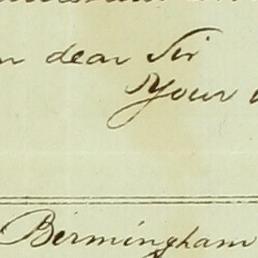 dear Sir
Your
Birmingham